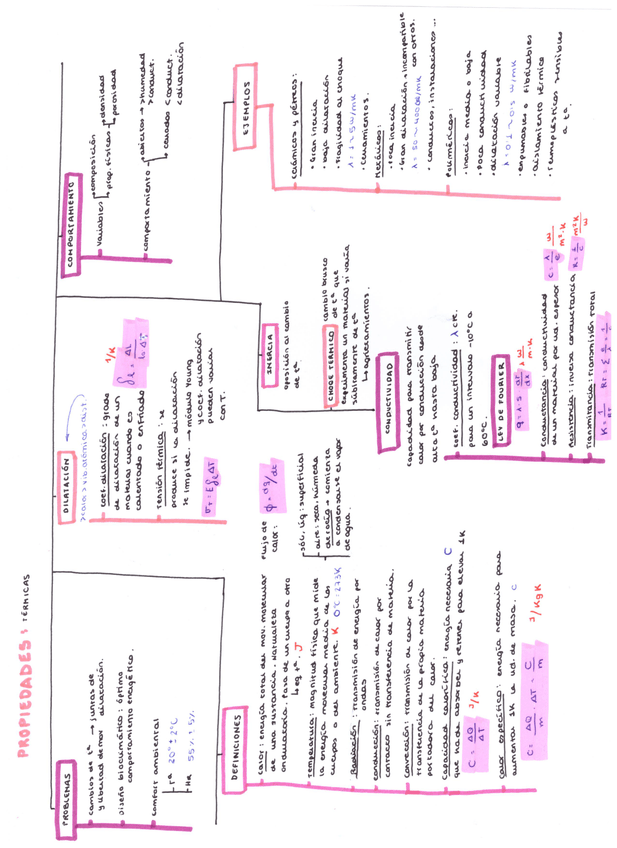 PROPIEDADES : TÉRMICAS
PROBLEMAS
• cambios de tª → juntas de
y libertad de mov dilatación.
• Diseño bioclimático : óptimo
comportamiento energético.
• comfort ambiental
Tª 20° ± 2°C
HR 55% ± 5%
DEFINICIONES
calor : energía total del mov. molecular
de una sustancia. Naturaleza
ondulatoria. Pasa de un cuerpo a otro
↳ eq. tª. J
Flujo de
calor :
ϕ = dq/dt
Temperatura : magnitud física que mide
la energía molecular media de los
cuerpos o del ambiente. K 0°C = 273K
sól. líq : superficial
aire : seca, húmeda
de rocío → comienza
a condensarse el vapor
de agua.
Radiación : transmisión de energía por
ondas
conducción : transmisión de calor por
contacto sin transferencia de materia.
convección : transmisión de calor por la
transferencia de la propia materia
portadora del calor.
Capacidad calorífica : energía necesaria C
que ha de absorber y retener para elevar 1K
C = ΔQ/ΔT J/K
calor específico : energía necesaria para
aumentar 1K la ud. de masa. c
C = ΔQ/m · ΔT = C/m J/KgK
DILATACIÓN
coef. dilatación : grado
de dilatación de un
material cuando es
calentado o enfriado
ΔL / L₀ΔT
1/K
Tensión térmica : se
produce si la dilatación
se impide. → módulo Young
y coef. dilatación
pueden variar
con T.
INERCIA
oposición al cambio
de tª.
CHOQUE TÉRMICO
cambio brusco
de tª que
experimenta un material si varía
súbitamente de tª
↳ agrietamientos.
CONDUCTIVIDAD
capacidad para transmitir
calor por conducción desde
alta tª hasta baja
coef. conductividad : λ cte.
para un intervalo -10°C a
60°C.
LEY DE FOURIER
W/m·K
conductancia : conductividad
de un material por ud. espesor
C = λ/e W/m²·K
Resistencia : inversa conductancia
m²K/W
Transmitancia : transmisión total
COMPORTAMIENTO
variables
composición
prop. físicas
densidad
porosidad
comportamiento
abiertos → >humedad
>conduct.
cerrados <conduct.
<dilatación
EJEMPLOS
cerámicos y pétreos :
• Gran inercia
• baja dilatación
• fragilidad al choque
λ = 1 ~ 5 W/mK
• cerramientos.
Metálicos :
• Poca inercia
• Gran dilatación → incompatible
con otros.
λ = 50 ~ 4000 W/mK
• conductos, instalaciones ...
Poliméricos :
• inercia media o baja
• Poca conductividad
• dilatación variable
λ = 0'1 ~ 0'5 W/mK
• espumables o fibrilables
• aislamiento térmico
• termoplásticos sensibles
a tª.